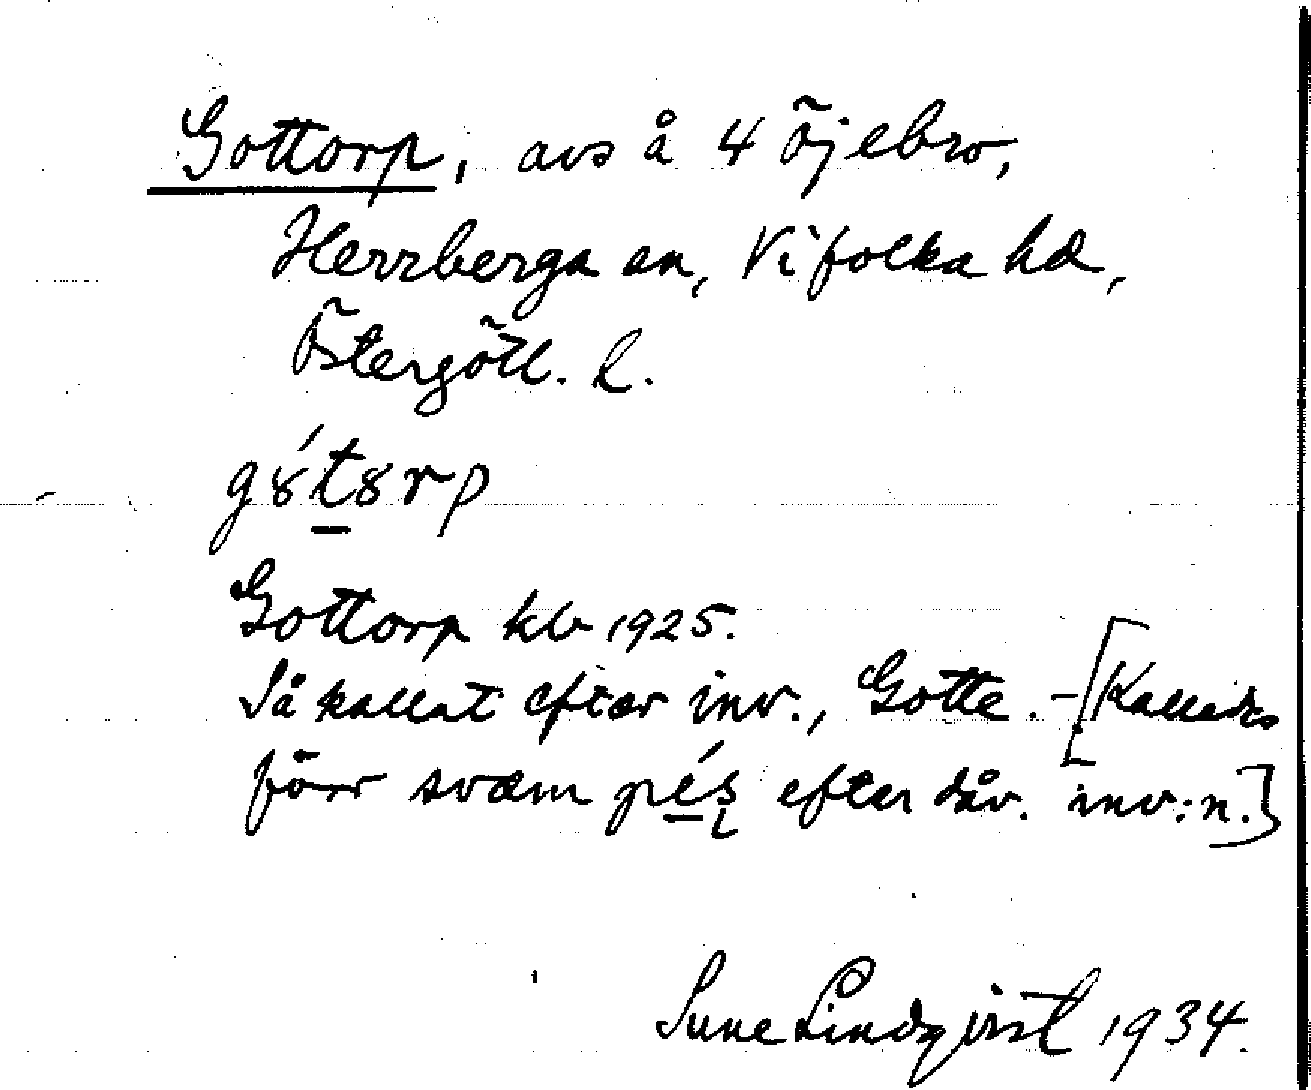 Gottorp, avs å 4 Öjebro,
Herrberga sn, Vifolka hd,
Östergötl. l.
Gottorp kb 1925.
Så kallat efter inv., Gotte. - [Kallades
förr efter dåv. inv:n.]
Sune Lindqvist 1934.